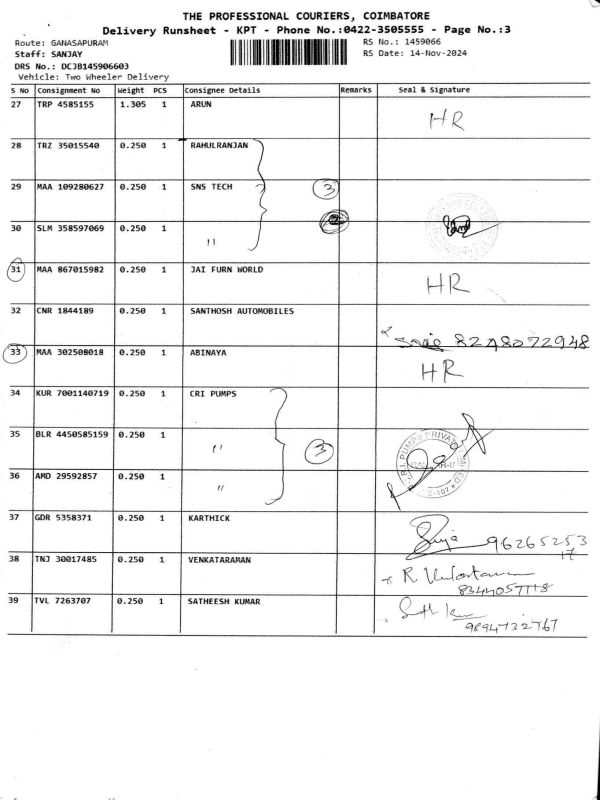 THE PROFESSIONAL COURIERS, COIMBATORE
Delivery Runsheet - KPT - Phone No.:0422-3505555 - Page No.:3
Route: GANASAPURAM RS No.: 1459066
Staff: SANJAY RS Date: 14-Nov-2024
DRS No.: DCJB145906603
Vehicle: Two Wheeler Delivery
S No Consignment No Weight PCS Consignee Details Remarks Seal & Signature
27 TRP 4585155 1.305 1 ARUN HR
28 TRZ 35015540 0.250 1 RAHULRANJAN
29 MAA 109280627 0.250 1 SNS TECH 3
30 SLM 358597069 0.250 1 "
31 MAA 867015982 0.250 1 JAI FURN WORLD HR
32 CNR 1844189 0.250 1 SANTHOSH AUTOMOBILES
33 MAA 302508018 0.250 1 ABINAYA HR
34 KUR 7001140719 0.250 1 CRI PUMPS
35 BLR 4450585159 0.250 1 " 3
36 AMD 29592857 0.250 1 "
37 GDR 5358371 0.250 1 KARTHICK 96265253
17
38 TNJ 30017485 0.250 1 VENKATARAMAN
39 TVL 7263707 0.250 1 SATHEESH KUMAR
9894732767